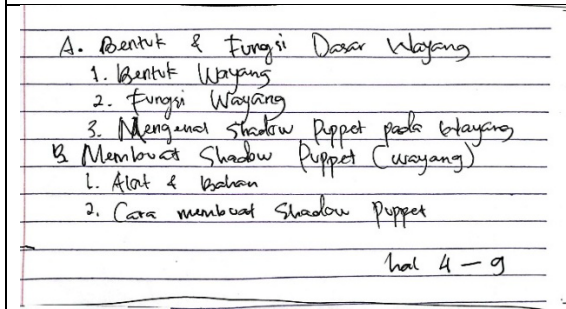 A. Bentuk & Fungsi Dasar Wayang
1. Bentuk Wayang
2. Fungsi Wayang
3. Mengenal Shadow Puppet pada Wayang
B. Membuat Shadow Puppet (wayang)
1. Alat & Bahan
2. Cara membuat Shadow Puppet
hal 4 – 9